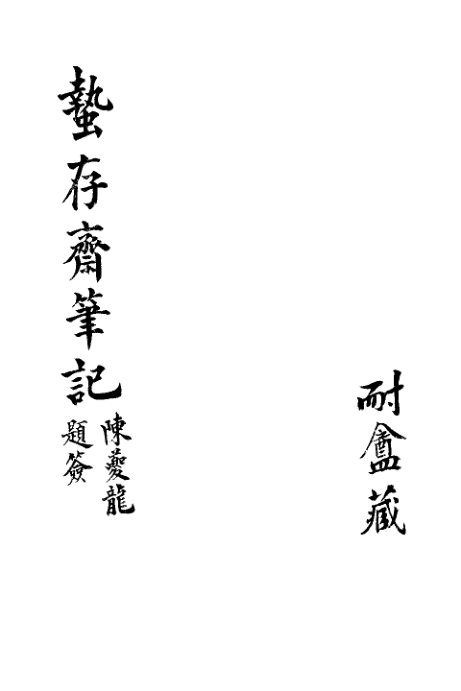 耐盦藏
蟄存齋筆記
陳夔龍
題簽